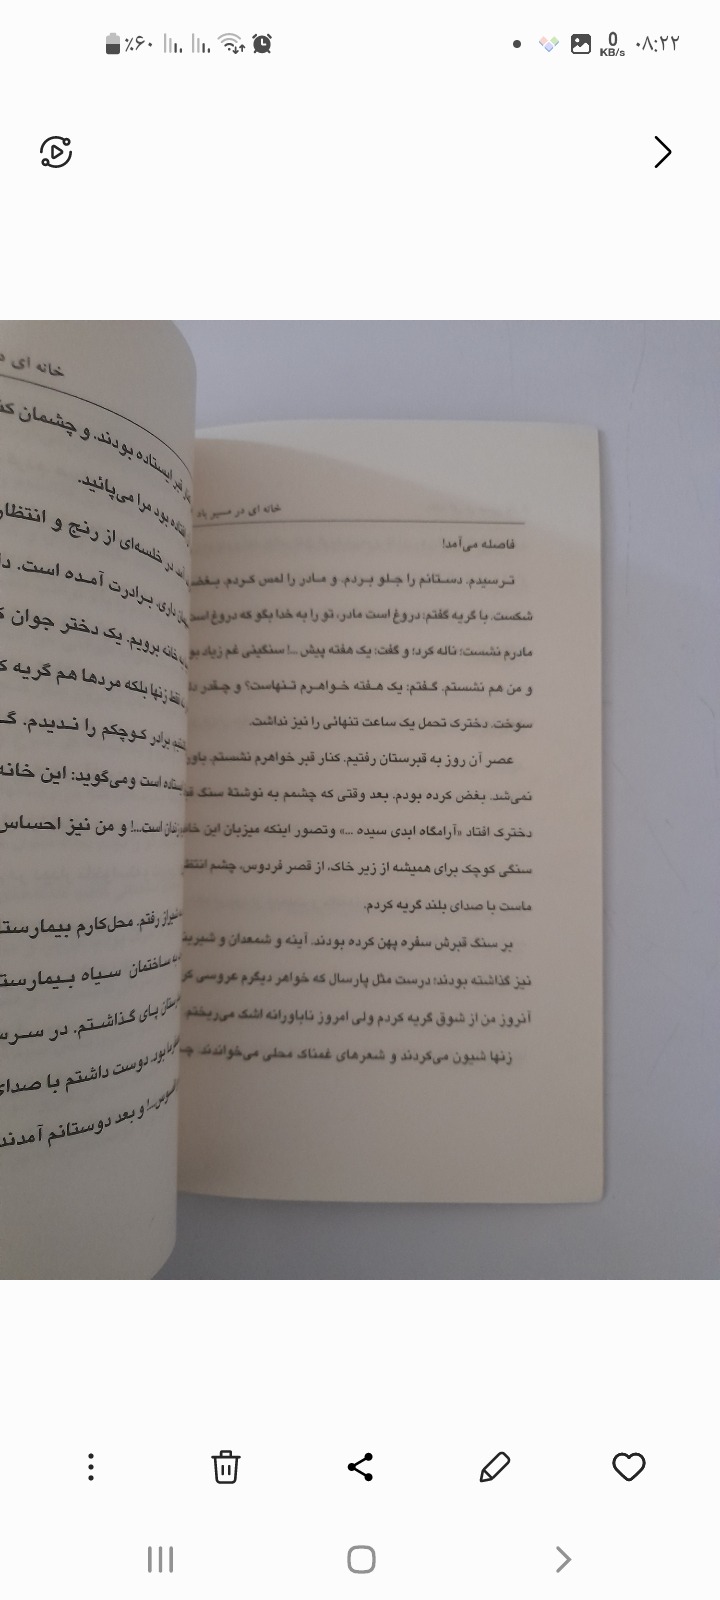 ۰۸:۲۲
0
KB/s
٪۶۰
خانه ای در مسیر باد
فاصله می‌آمد!
ترسیدم. دستانم را جلو بردم. و مادر را لمس کردم. بغض
شکست. با گریه گفتم: دروغ است مادر، تو را به خدا بگو که دروغ است
مادرم نشست: ناله کرد؛ و گفت: یک هفته پیش ...! سنگینی غم زیاد
و من هم نشستم. گفتم: یک هفته خواهرم تنهاست؟ و چقدر
سوخت. دخترک تحمل یک ساعت تنهائی را نیز نداشت.
عصر آن روز به قبرستان رفتیم. کنار قبر خواهرم نشستم. باور
نمی‌شد. بغض کرده بودم. بعد وقتی که چشمم به نوشتهٔ سنگ
دخترک افتاد «آرامگاه ابدی سیده ...» وتصور اینکه میزبان این
سنگی کوچک برای همیشه از زیر خاک، از قصر فردوس، چشم
ماست با صدای بلند گریه کردم.
بر سنگ قبرش سفره پهن کرده بودند. آینه و شمعدان و
نیز گذاشته بودند؛ درست مثل پارسال که خواهر دیگرم عروسی
آنروز من از شوق گریه کردم ولی امروز ناباورانه اشک می‌ریختم.
زنها شیون می‌کردند و شعرهای غمناک محلی می‌خواندند.
خانه ای
قبر ایستاده بودند. و چشمان
افتاده بود مرا می‌پائید.
در خلسه‌ای از رنج و انتظار
داری، برادرت آمده است.
خانه برویم. یک دختر جوان
فقط زنها بلکه مردها هم گریه
برادر کوچکم را ندیدم.
ایستاده است ومی‌گوید: این خانه
است...! و من نیز احساس
شیراز رفتم. محل‌کارم
ساختمان سیاه
پای گذاشتم. در
بود. دوست داشتم با صدای
و بعد دوستانم آمدند